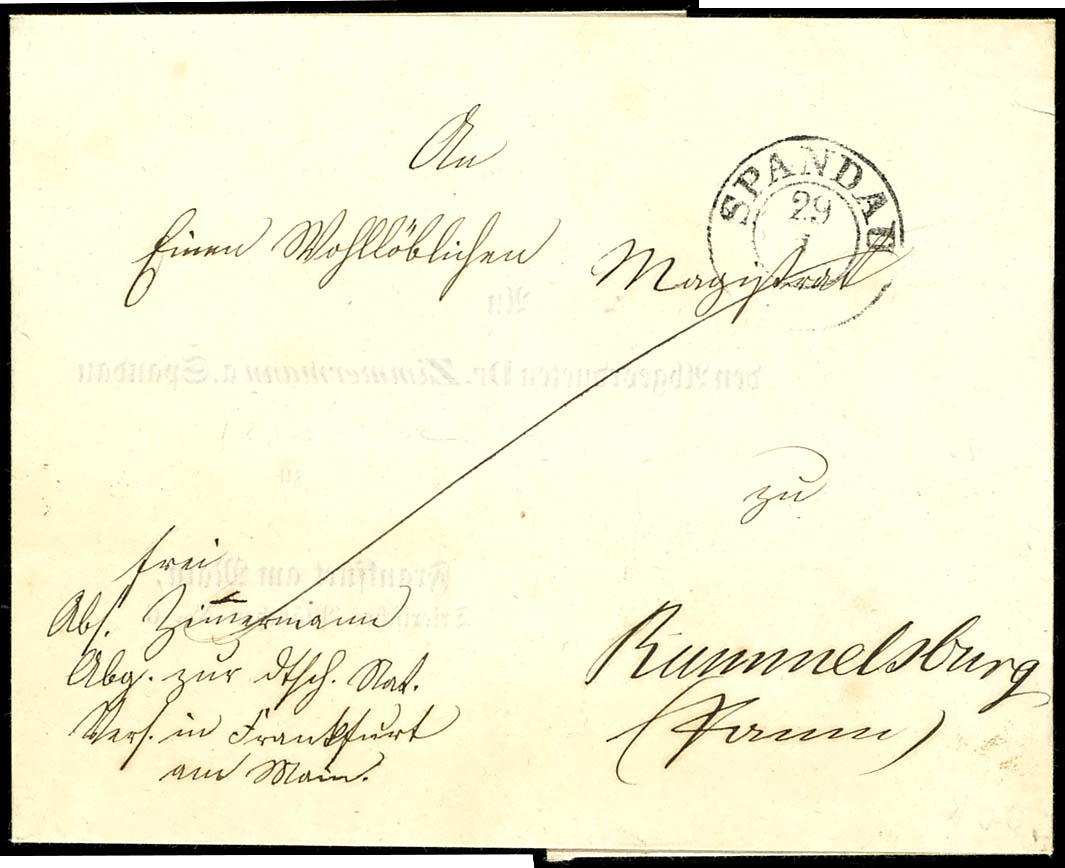 An
SPANDAU
29
1
Einen Wohllöblichen Magistrat
An
den Abgeordneten Dr. Zimmermann a. Spandau
zu
zu
Frankfurt am Main,
frei
Abs. Zimmermann
Abg. zur dtsch. Nat.
Vers. in Frankfurt
am Main.
Rummelsburg
(Pomm)